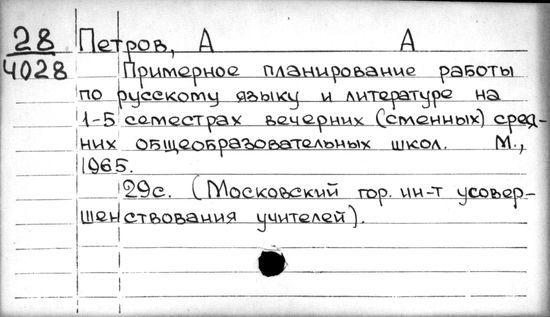 28 Петров, А А
4028 Примерное планирование работы
по русскому языку и литературе на
1-5 семестрах вечерних (сменных) сред-
них общеобразовательных школ. М.,
1965.
29с. (Московский гор. ин-т усовер-
шенствования учителей).